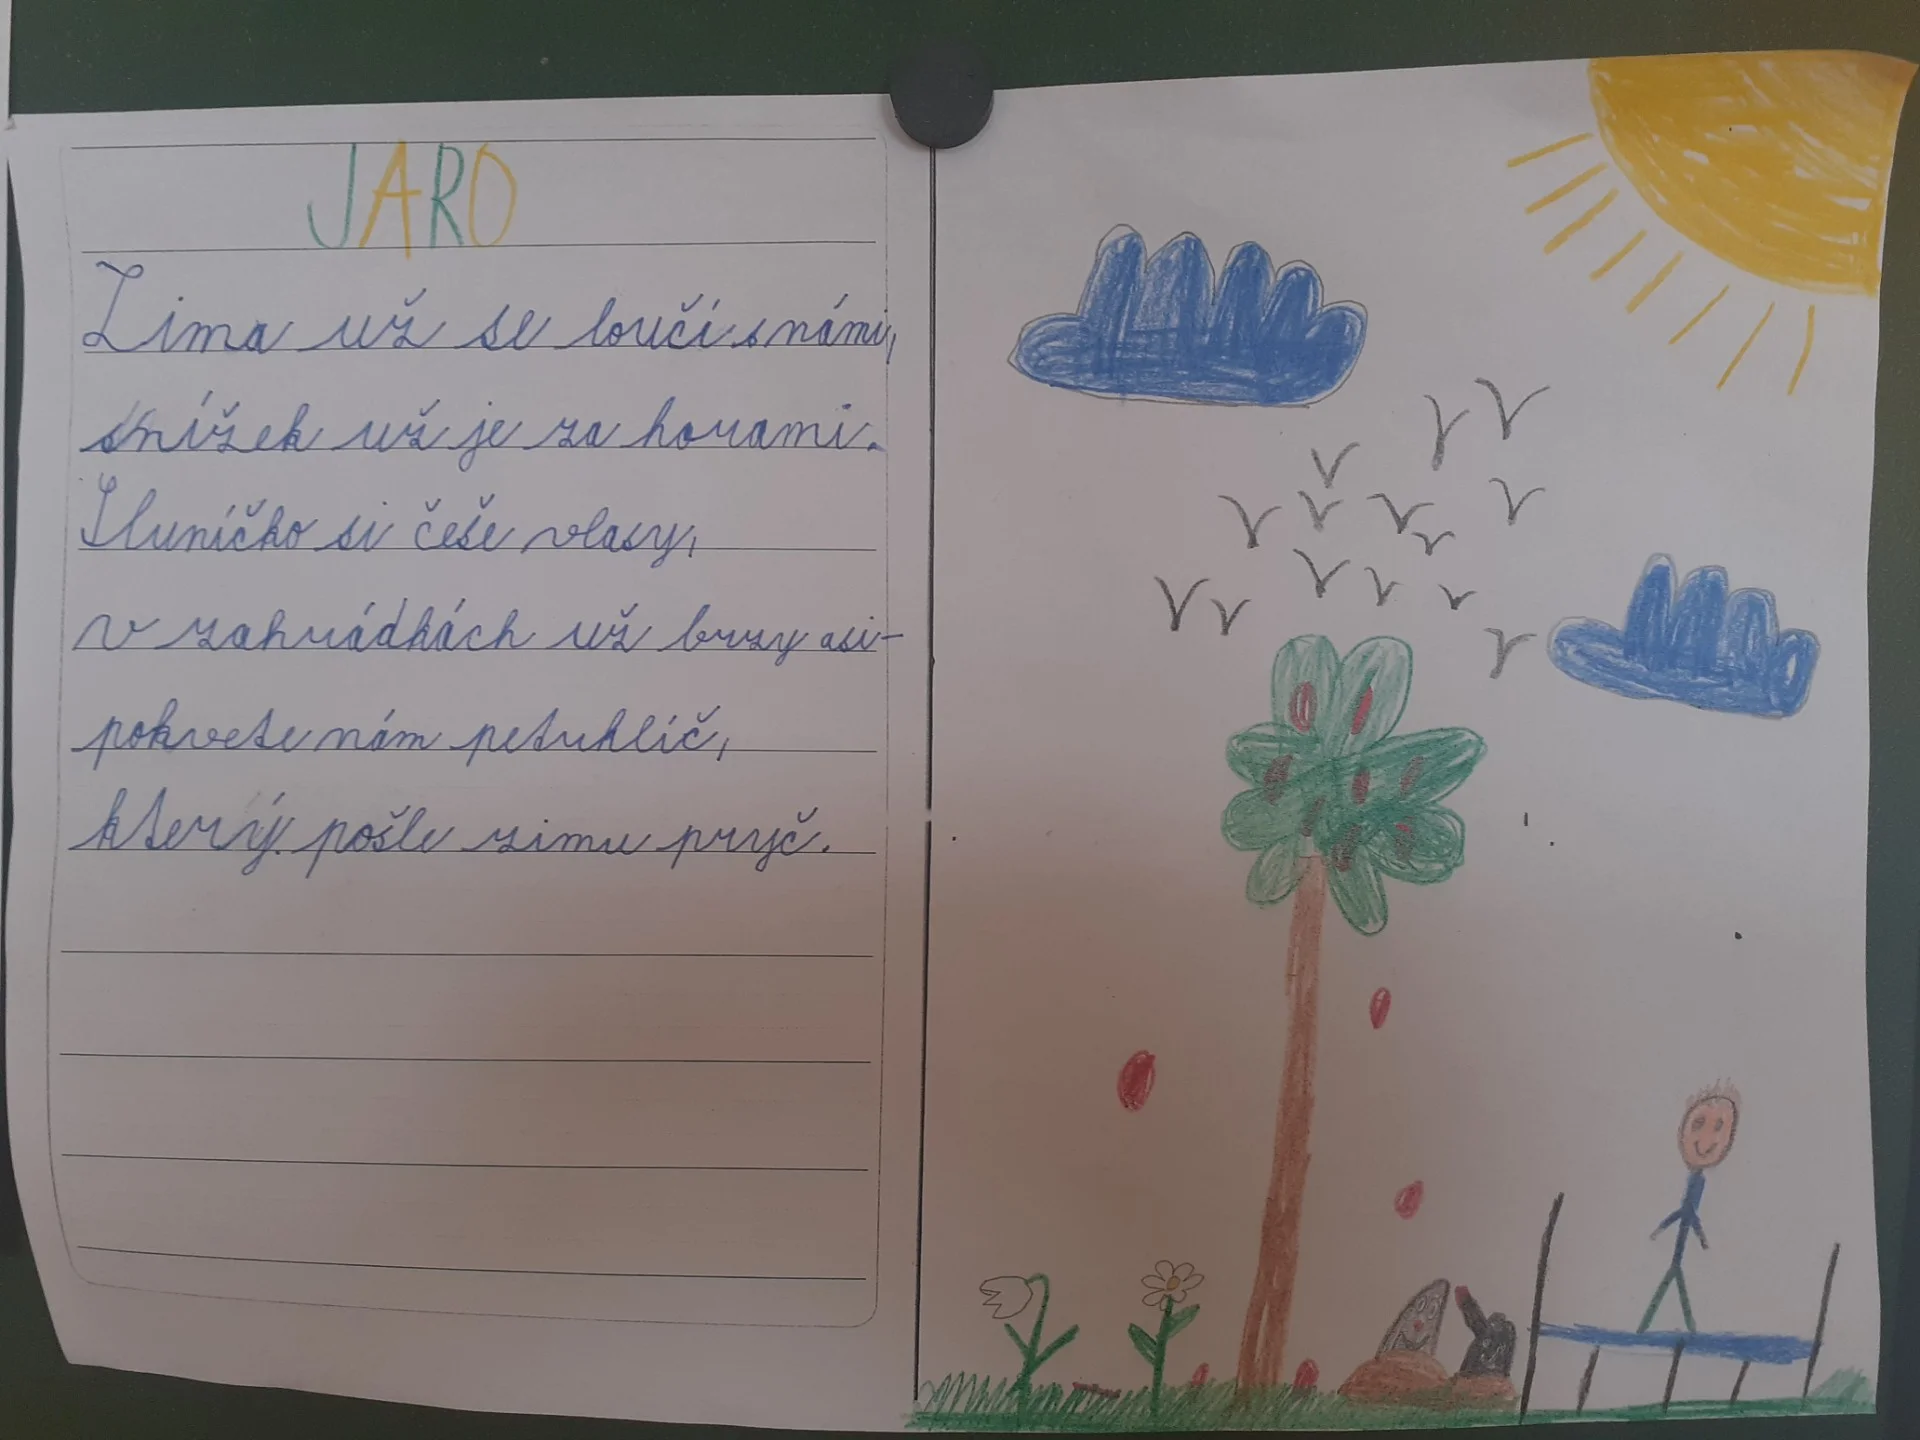 JARO
Zima už se loučí s námi,
snížek už je za horami.
Sluníčko si češe vlasy,
v zahrádkách už brzy asi-
pokvete nám petuhlíč,
který pošle zimu pryč.